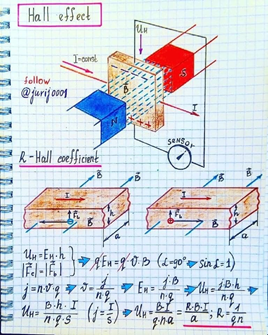 Hall effect
U_H
I=const
S
B
follow
@jurij0001
N
I
sensor
R-Hall coefficient
B
B
B
B
I
F_L
h
a
I
F_L
h
t
a
U_H = E_H · h
|F_e| = |F_L| } → qE_H = q·V·B (α=90° → sin α=1)
j = n·v·q → v = j/n·q } → E_H = j·B/n·q → U_H = j·B·h/n·q
U_H = B·h·I/n·q·S (j = I/S) → U_H = B·I/q·n·a = R·B·I/a ; R = 1/qn